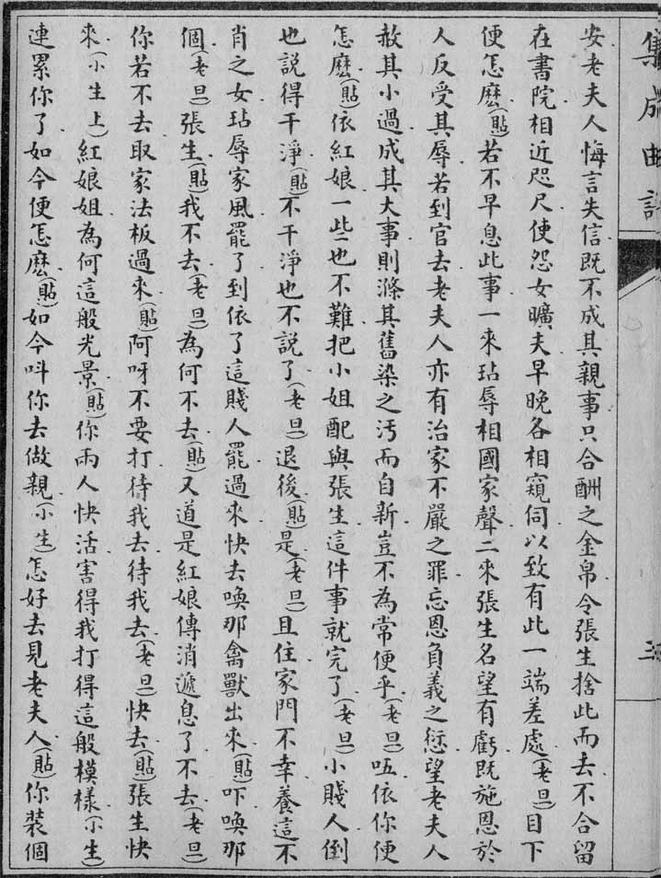 集成曲譜
安老夫人悔言失信既不成其親事只合酬之金帛令張生捨此而去不合留
在書院相近咫尺使怨女曠夫早晚各相窺伺以致有此一端差處(老旦)目下
便怎麼(貼)若不早息此事一來玷辱相國家聲二來張生名望有虧既施恩於
人反受其辱若到官去老夫人亦有治家不嚴之罪忘恩負義之愆望老夫人
赦其小過成其大事則滌其舊染之汚而自新豈不為常便乎(老旦)㕶依你便
怎麽(貼)依紅娘一些也不難把小姐配與張生這件事就完了(老旦)小賤人倒
也說得干淨(貼)不干淨也不說了(老旦)退後(貼)是(老旦)且住家門不幸養這不
肖之女玷辱家風罷了到依了這賤人罷過來快去喚那禽獸出來(貼)吓喚那
個(老旦)張生(貼)我不去(老旦)為何不去(貼)又道是紅娘傳消遞息了不去(老旦)
你若不去取家法板過來(貼)阿呀不要打待我去待我去(老旦)快去(貼)張生快
來(小生上)紅娘姐為何這般光景(貼)你兩人快活害得我打得這般模樣(小生)
連累你了如今便怎麽(貼)如今呌你去做親(小生)怎好去見老夫人(貼)你裝個